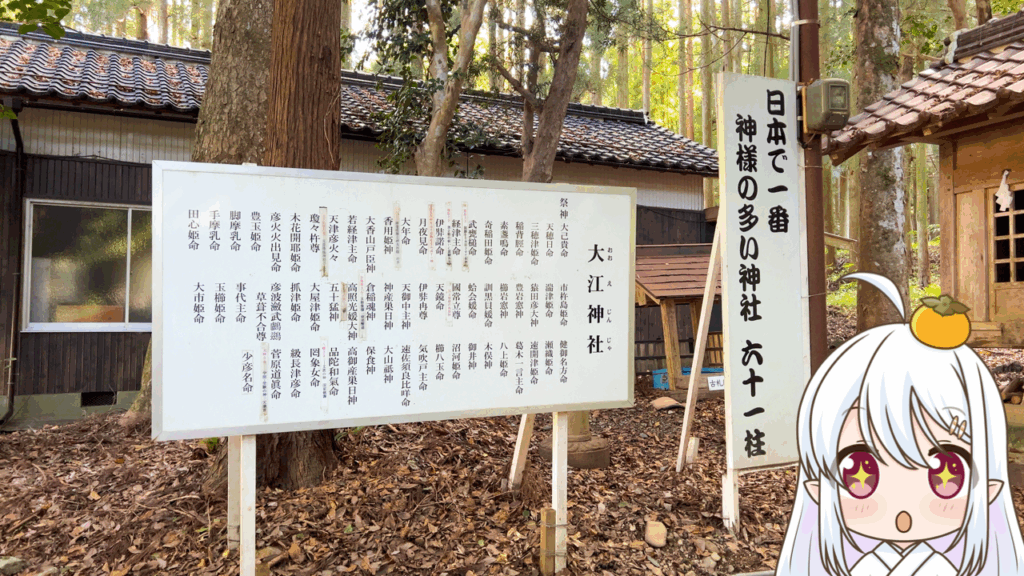 大江神社
おお え じん じゃ
祭神 大己貴命 市杵島姫命 健御名方命
天穂日命 湍津姫命 瀬織姫命
三穂津姫命 猿田彦大神 速開津姫命
稲背脛命 豊岩窓神 葛木一言主命
素盞嗚命 櫛岩窓神 八上姫命
奇稲田姫命 訓黒臼媛命 木俣神
武甕槌命 蛤会媛命 御井神
経津主命 國常立尊 沼河姫命
伊弉諾命 天鏡命 櫛八玉命
月夜見命 伊弉冉尊 気吹戸主命
大年命 天御中主神 速佐須良比咩命
香用姫神 神産巣日神 大山祗神
大香山戸臣神 倉稲魂神 保食神
若経津主命 高照光媛大神 高御産巣日神
天津彦火々 五十猛神 品陀和氣命
瓊々杵尊 大屋津姫命 罔象女命
木花開耶姫命 抓津姫命 級長津彦命
彦火火出見命 彦波瀲武鸕鶿 菅原道眞命
豊玉姫命 草葺不合尊 少彦名命
脚摩乳命 事代主命
手摩乳命 玉櫛姫命
田心姫命 大市姫命
日本で一番
神様の多い神社 六十一柱
古札